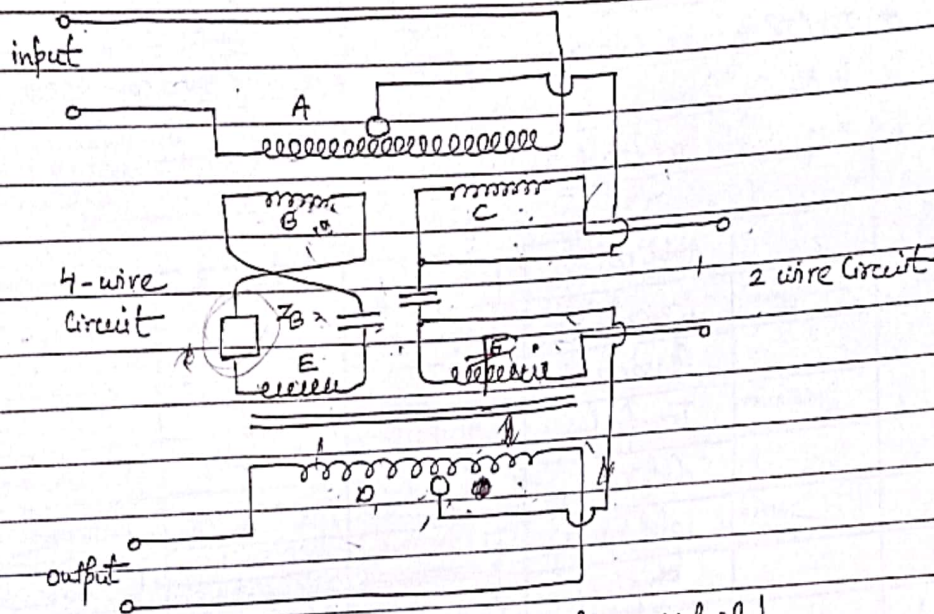 input
A
B
C
4-wire
Circuit
2 wire Circuit
ZB
E
F
D
output